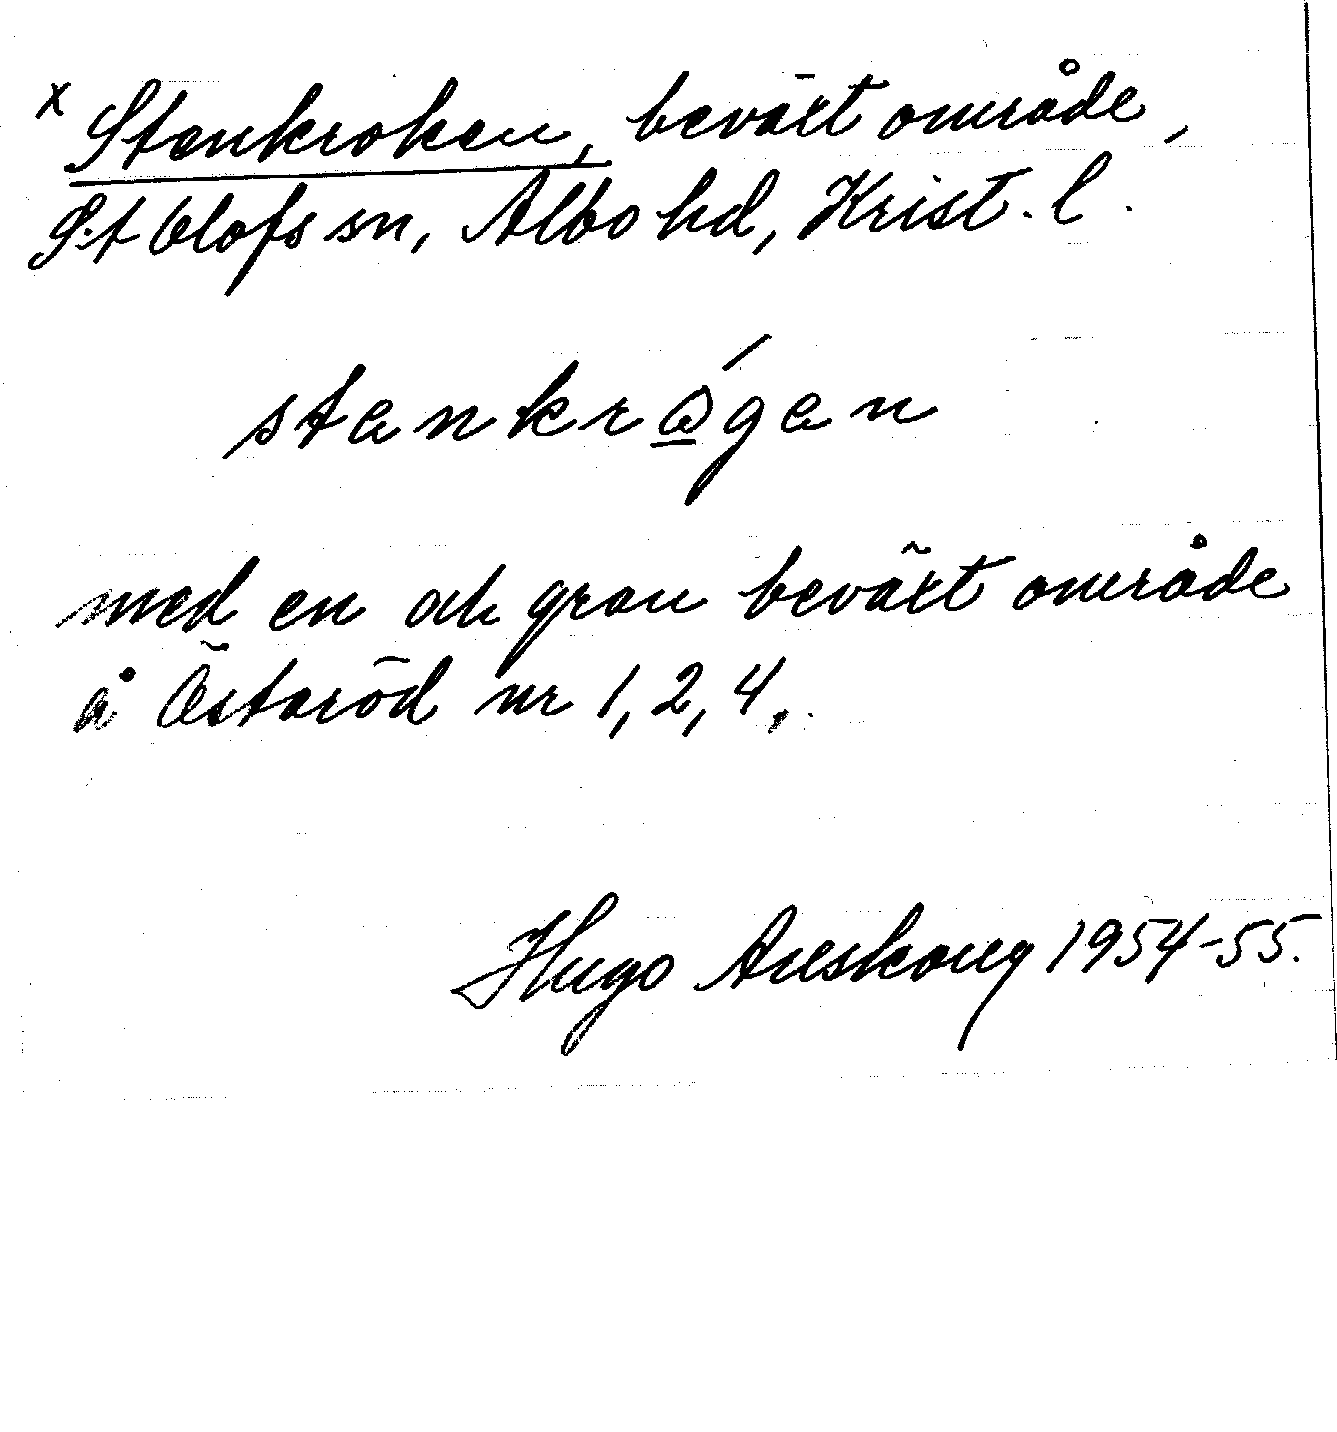 x Stenkroken, beväxt område,
S:t Olofs sn, Albo hd, Krist. l.
stenkrǫ́gen
med en och gran beväxt område
å Östaröd nr 1, 2, 4.
Hugo Areskoug 1954-55.